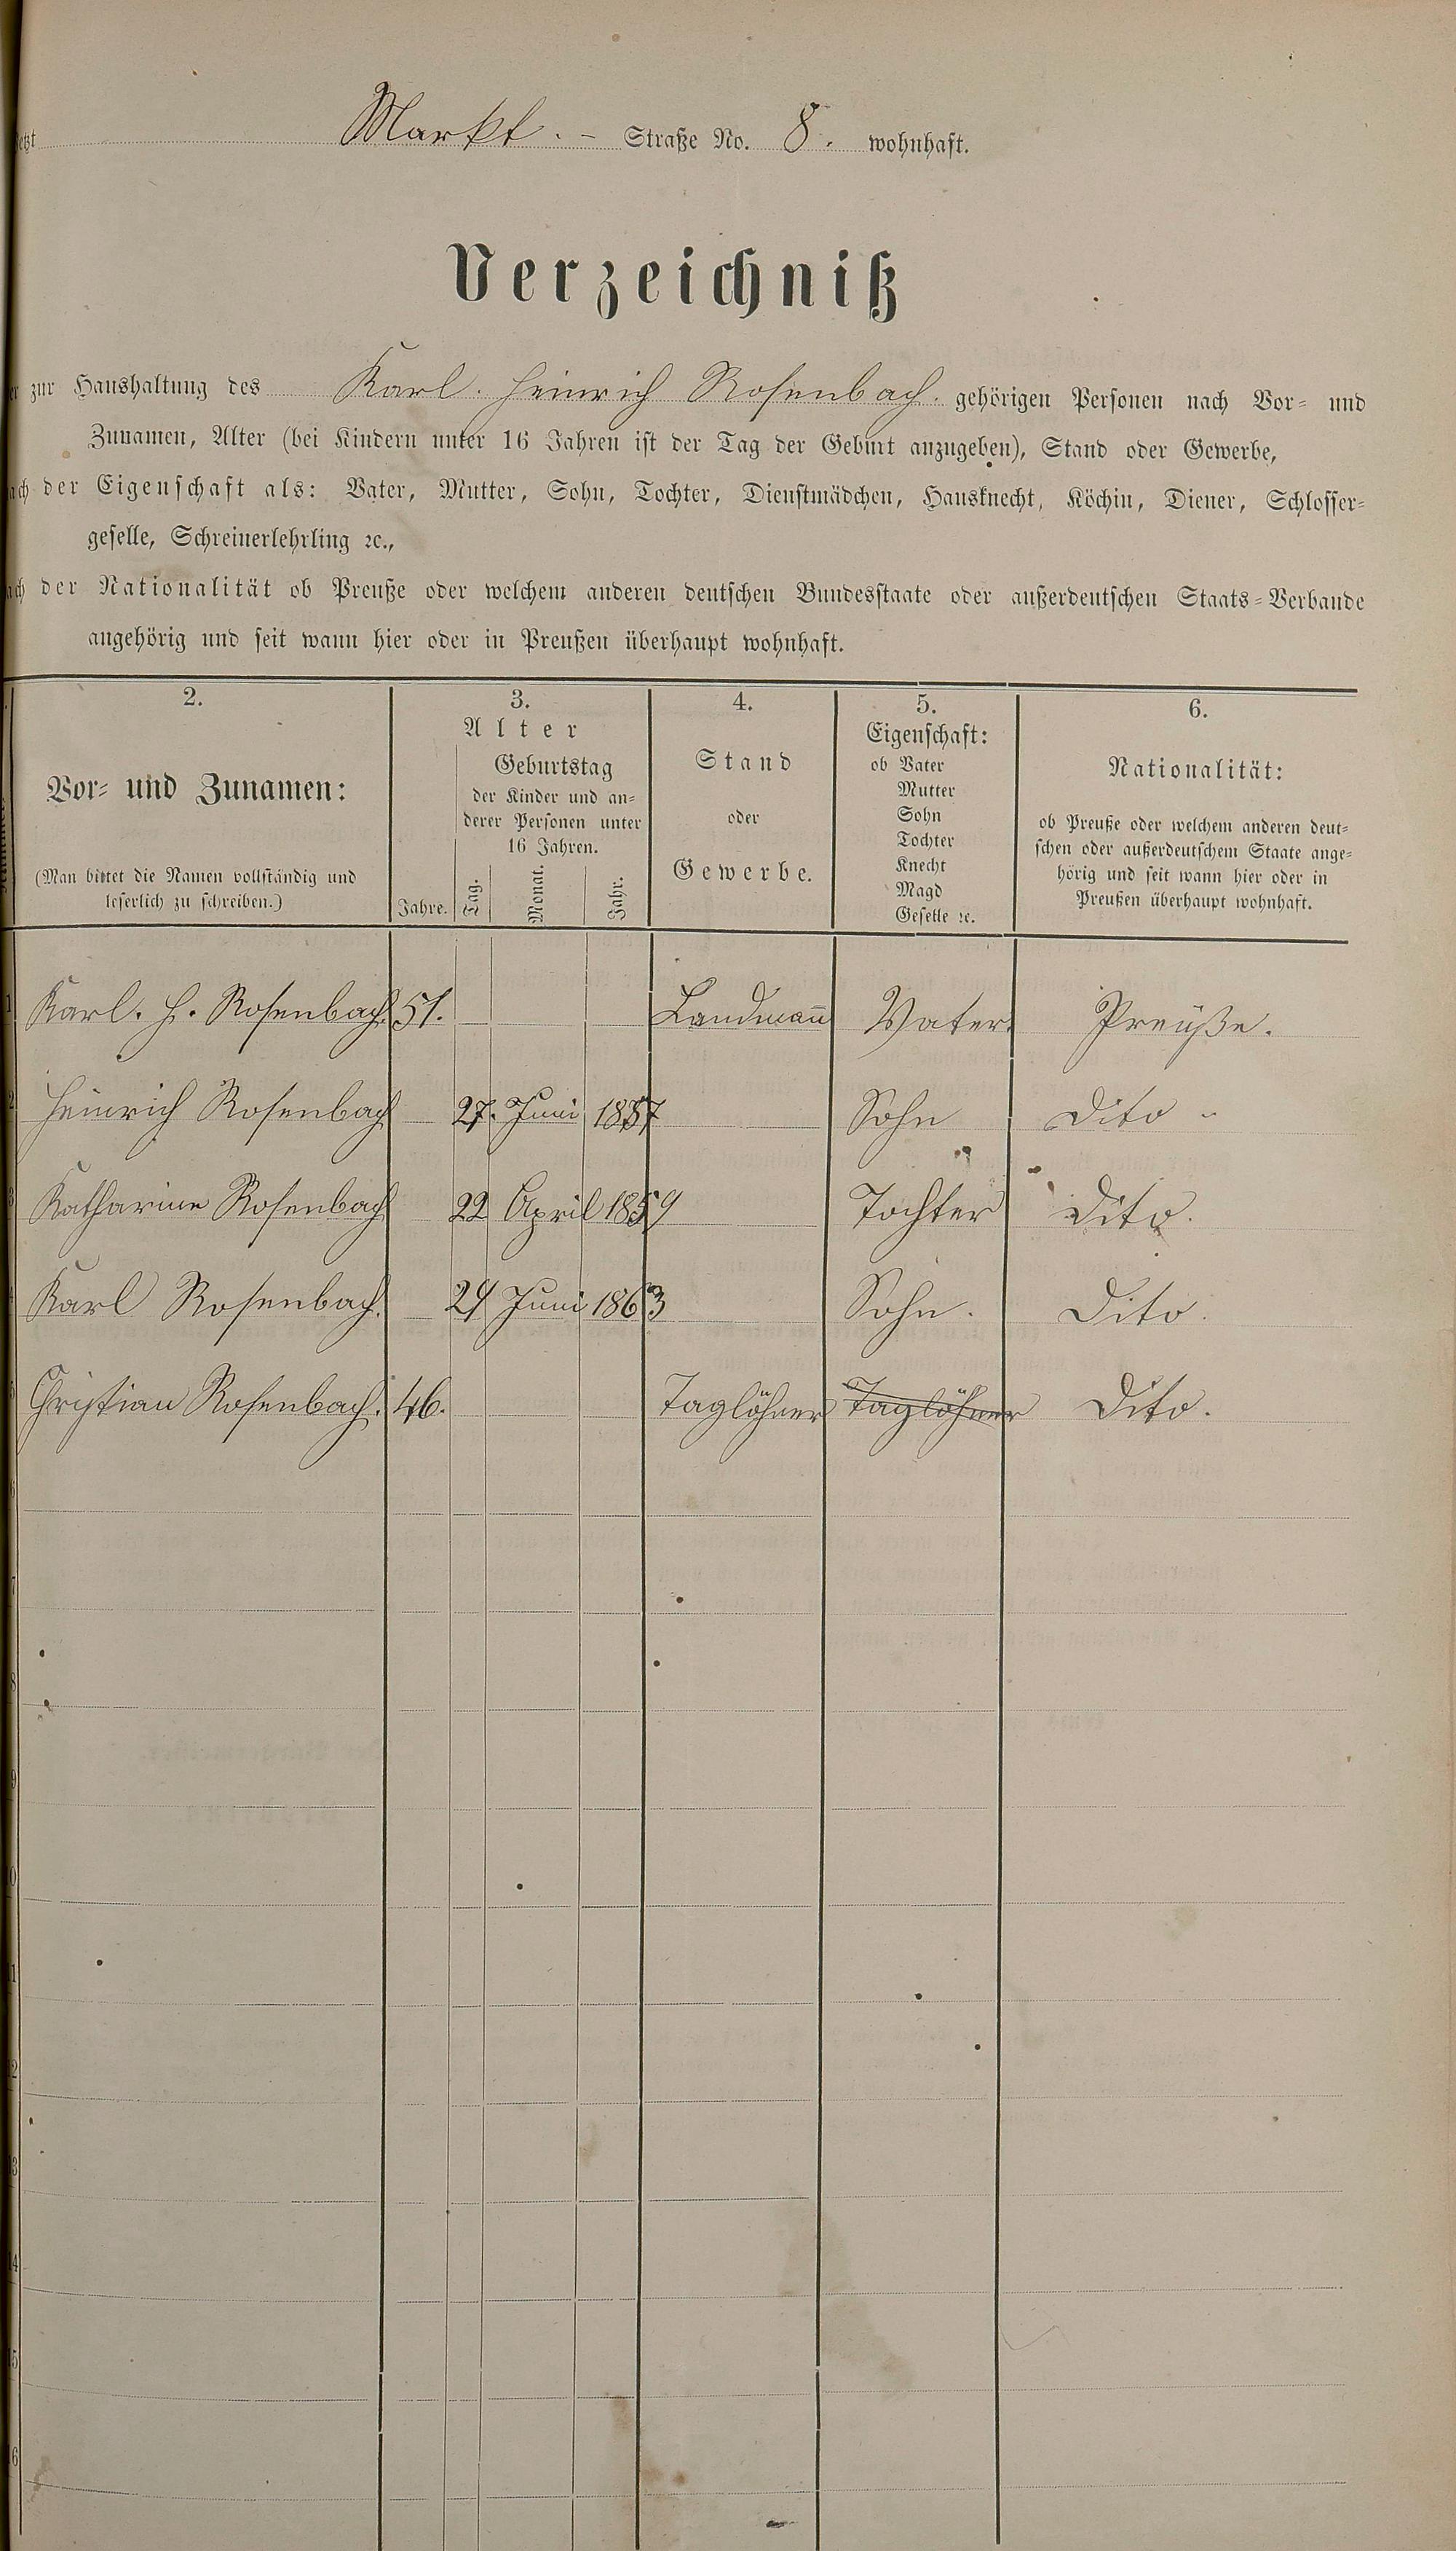 Markt. - Straße No. 8. wohnhaft.
Verzeichniß
zur Haushaltung des Karl. Heinrich Rosenbach. gehörigen Personen nach Vor- und
Zunamen, Alter (bei Kindern unter 16 Jahren ist der Tag der Geburt anzugeben), Stand oder Gewerbe,
der Eigenschaft als: Vater, Mutter, Sohn, Tochter, Dienstmädchen, Hausknecht, Köchin, Diener, Schlosser-
geselle, Schreinerlehrling ꝛc.,
der Nationalität ob Preuße oder welchem anderen deutschen Bundesstaate oder außerdeutschen Staats-Verbande
angehörig und seit wann hier oder in Preußen überhaupt wohnhaft.
2.
Vor- und Zunamen:
(Man bittet die Namen vollständig und
leserlich zu schreiben.)
3.
Alter
Geburtstag
der Kinder und an-
derer Personen unter
16 Jahren.
Jahre. Tag. Monat. Jahr.
4.
Stand
oder
Gewerbe.
5.
Eigenschaft:
ob Vater
Mutter
Sohn
Tochter
Knecht
Magd
Geselle ꝛc.
6.
Nationalität:
ob Preuße oder welchem anderen deut-
schen oder außerdeutschem Staate ange-
hörig und seit wann hier oder in
Preußen überhaupt wohnhaft.
1 Karl. H. Rosenbach 51. Landman̄ Vater. Preuße.
2 Heinrich Rosenbach 27. Juni 1857 Sohn Dito
3 Katharine Rosenbach 22 April 1859 Tochter Dito.
4 Karl Rosenbach. 24 Juni 1863 Sohn. Dito.
5 Christian Rosenbach. 46. Taglöhner Taglöhner Dito.
6
7
8
9
0
1
2
3
4
5
6